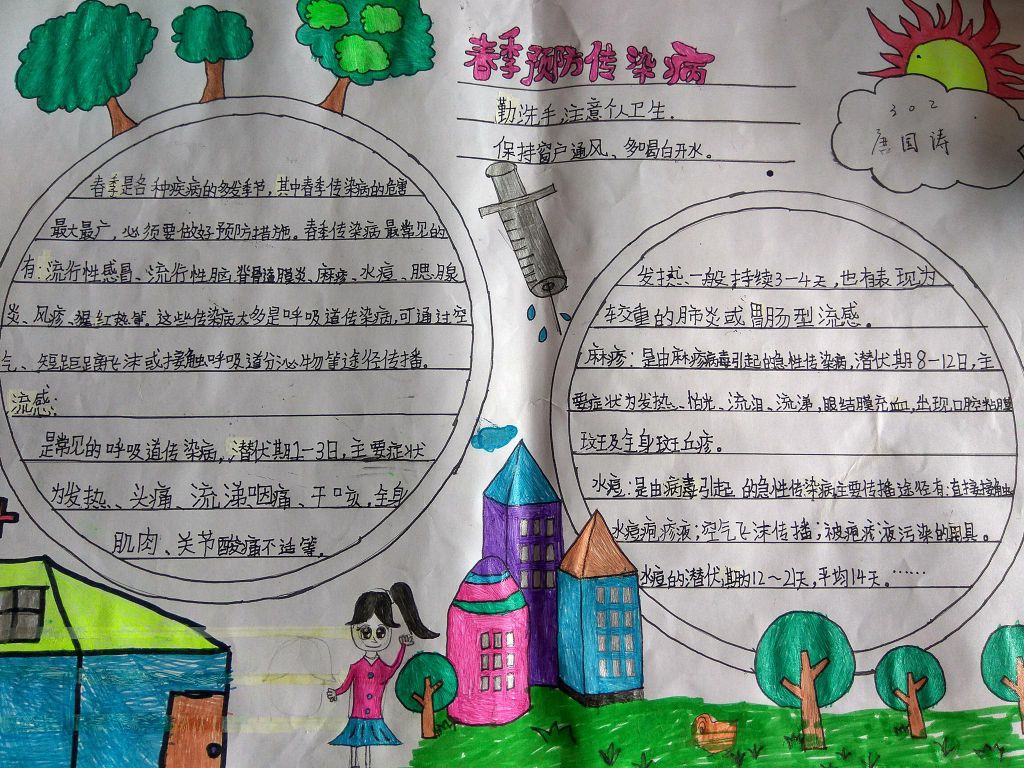 春季预防传染病
勤洗手,注意个人卫生.
保持窗户通风、多喝白开水。
302
唐国涛
春季是各种疾病的多发季节,其中春季传染病的危害
最大最广,必须要做好预防措施。春季传染病最常见的
有:流行性感冒、流行性脑脊髓膜炎、麻疹、水痘、腮腺
炎、风疹、猩红热等。这些传染病大多是呼吸道传染病,可通过空
气、短距离飞沫或接触呼吸道分泌物等途径传播。
流感:
是常见的呼吸道传染病,潜伏期1-3日,主要症状
为发热、头痛、流涕咽痛、干咳,全身
肌肉、关节酸痛不适等.
发热一般持续3-4天,也有表现为
较重的肺炎或胃肠型流感。
麻疹:是由麻疹病毒引起的急性传染病,潜伏期8-12日,主
要症状为发热、怕光、流泪、流涕,眼结膜充血,出现口腔粘膜
斑及全身斑丘疹。
水痘:是由病毒引起的急性传染病主要传播途径有:直接接触
水痘疱疹液;空气飞沫传播;被疱疹液污染的用具。
水痘的潜伏期为12~21天,平均14天。……